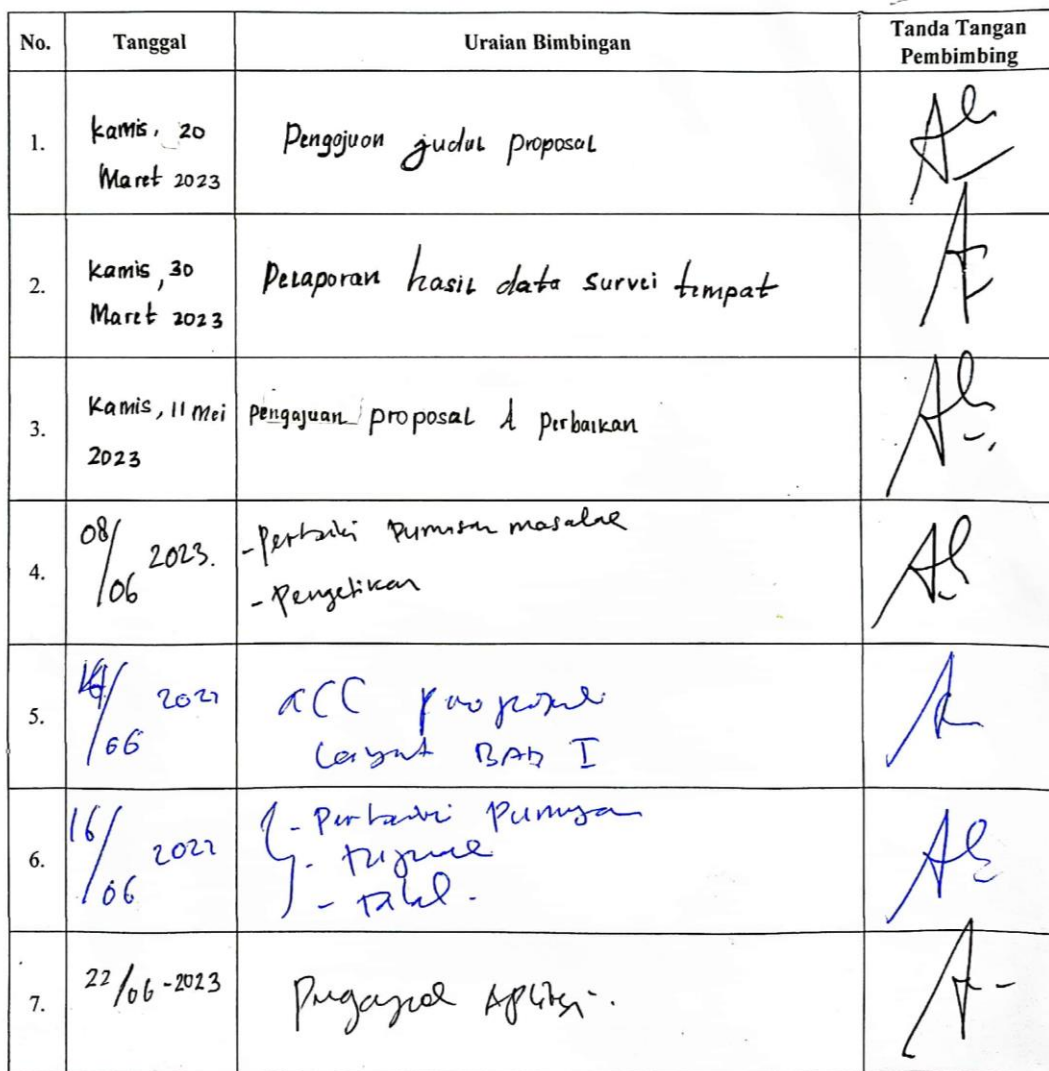 No. Tanggal Uraian Bimbingan Tanda Tangan Pembimbing
1. Kamis, 20 Maret 2023 Pengajuan judul proposal
2. Kamis, 30 Maret 2023 Pelaporan hasil data survei tempat
3. Kamis, 11 Mei 2023 pengajuan proposal & Perbaikan
4. 08/06 2023. - Perbaiki Rumusan masalah
- Pengetikan
5. /06 ACC proposal
Lanjut BAB I
6. 16/06 - Perbaiki Rumusan
-
- Tabel.
7. 22/06-2023 Aplikasi.